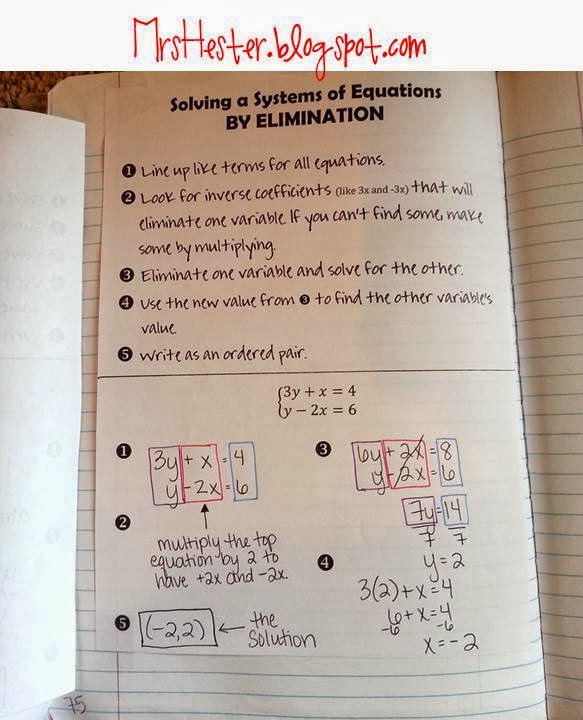 MrsHester.blogspot.com
Solving a Systems of Equations
BY ELIMINATION
❶ Line up like terms for all equations.
❷ Look for inverse coefficients (like 3x and -3x) that will
eliminate one variable. If you can't find some, make
some by multiplying.
❸ Eliminate one variable and solve for the other.
❹ Use the new value from ❸ to find the other variable's
value.
❺ Write as an ordered pair.
{3y + x = 4
y − 2x = 6
❶ 3y + x = 4
y - 2x = 6
❷
multiply the top
equation by 2 to
have +2x and -2x.
❸ 6y + 2x = 8
y - 2x = 6
7y = 14
7 7
y = 2
❹
3(2) + x = 4
6 + x = 4
-6 -6
x = -2
❺ (-2,2) ← the
solution
75